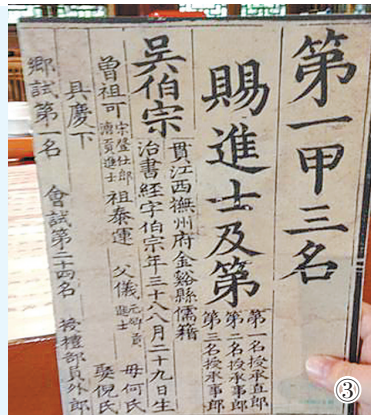 第一甲三名
賜進士及第
第一名授承直郎
第二名授承事郎
第三名授承事郎
吳伯宗
貫江西撫州府金谿縣儒籍
治書經字伯宗年三十八八月二十九日生
曾祖可 宋登仕郎 漕貢進士 祖泰運 父儀 元鄉貢 進士 母何氏
具慶下 娶倪氏
鄉試第一名 會試第二十四名 授禮部員外郎
③